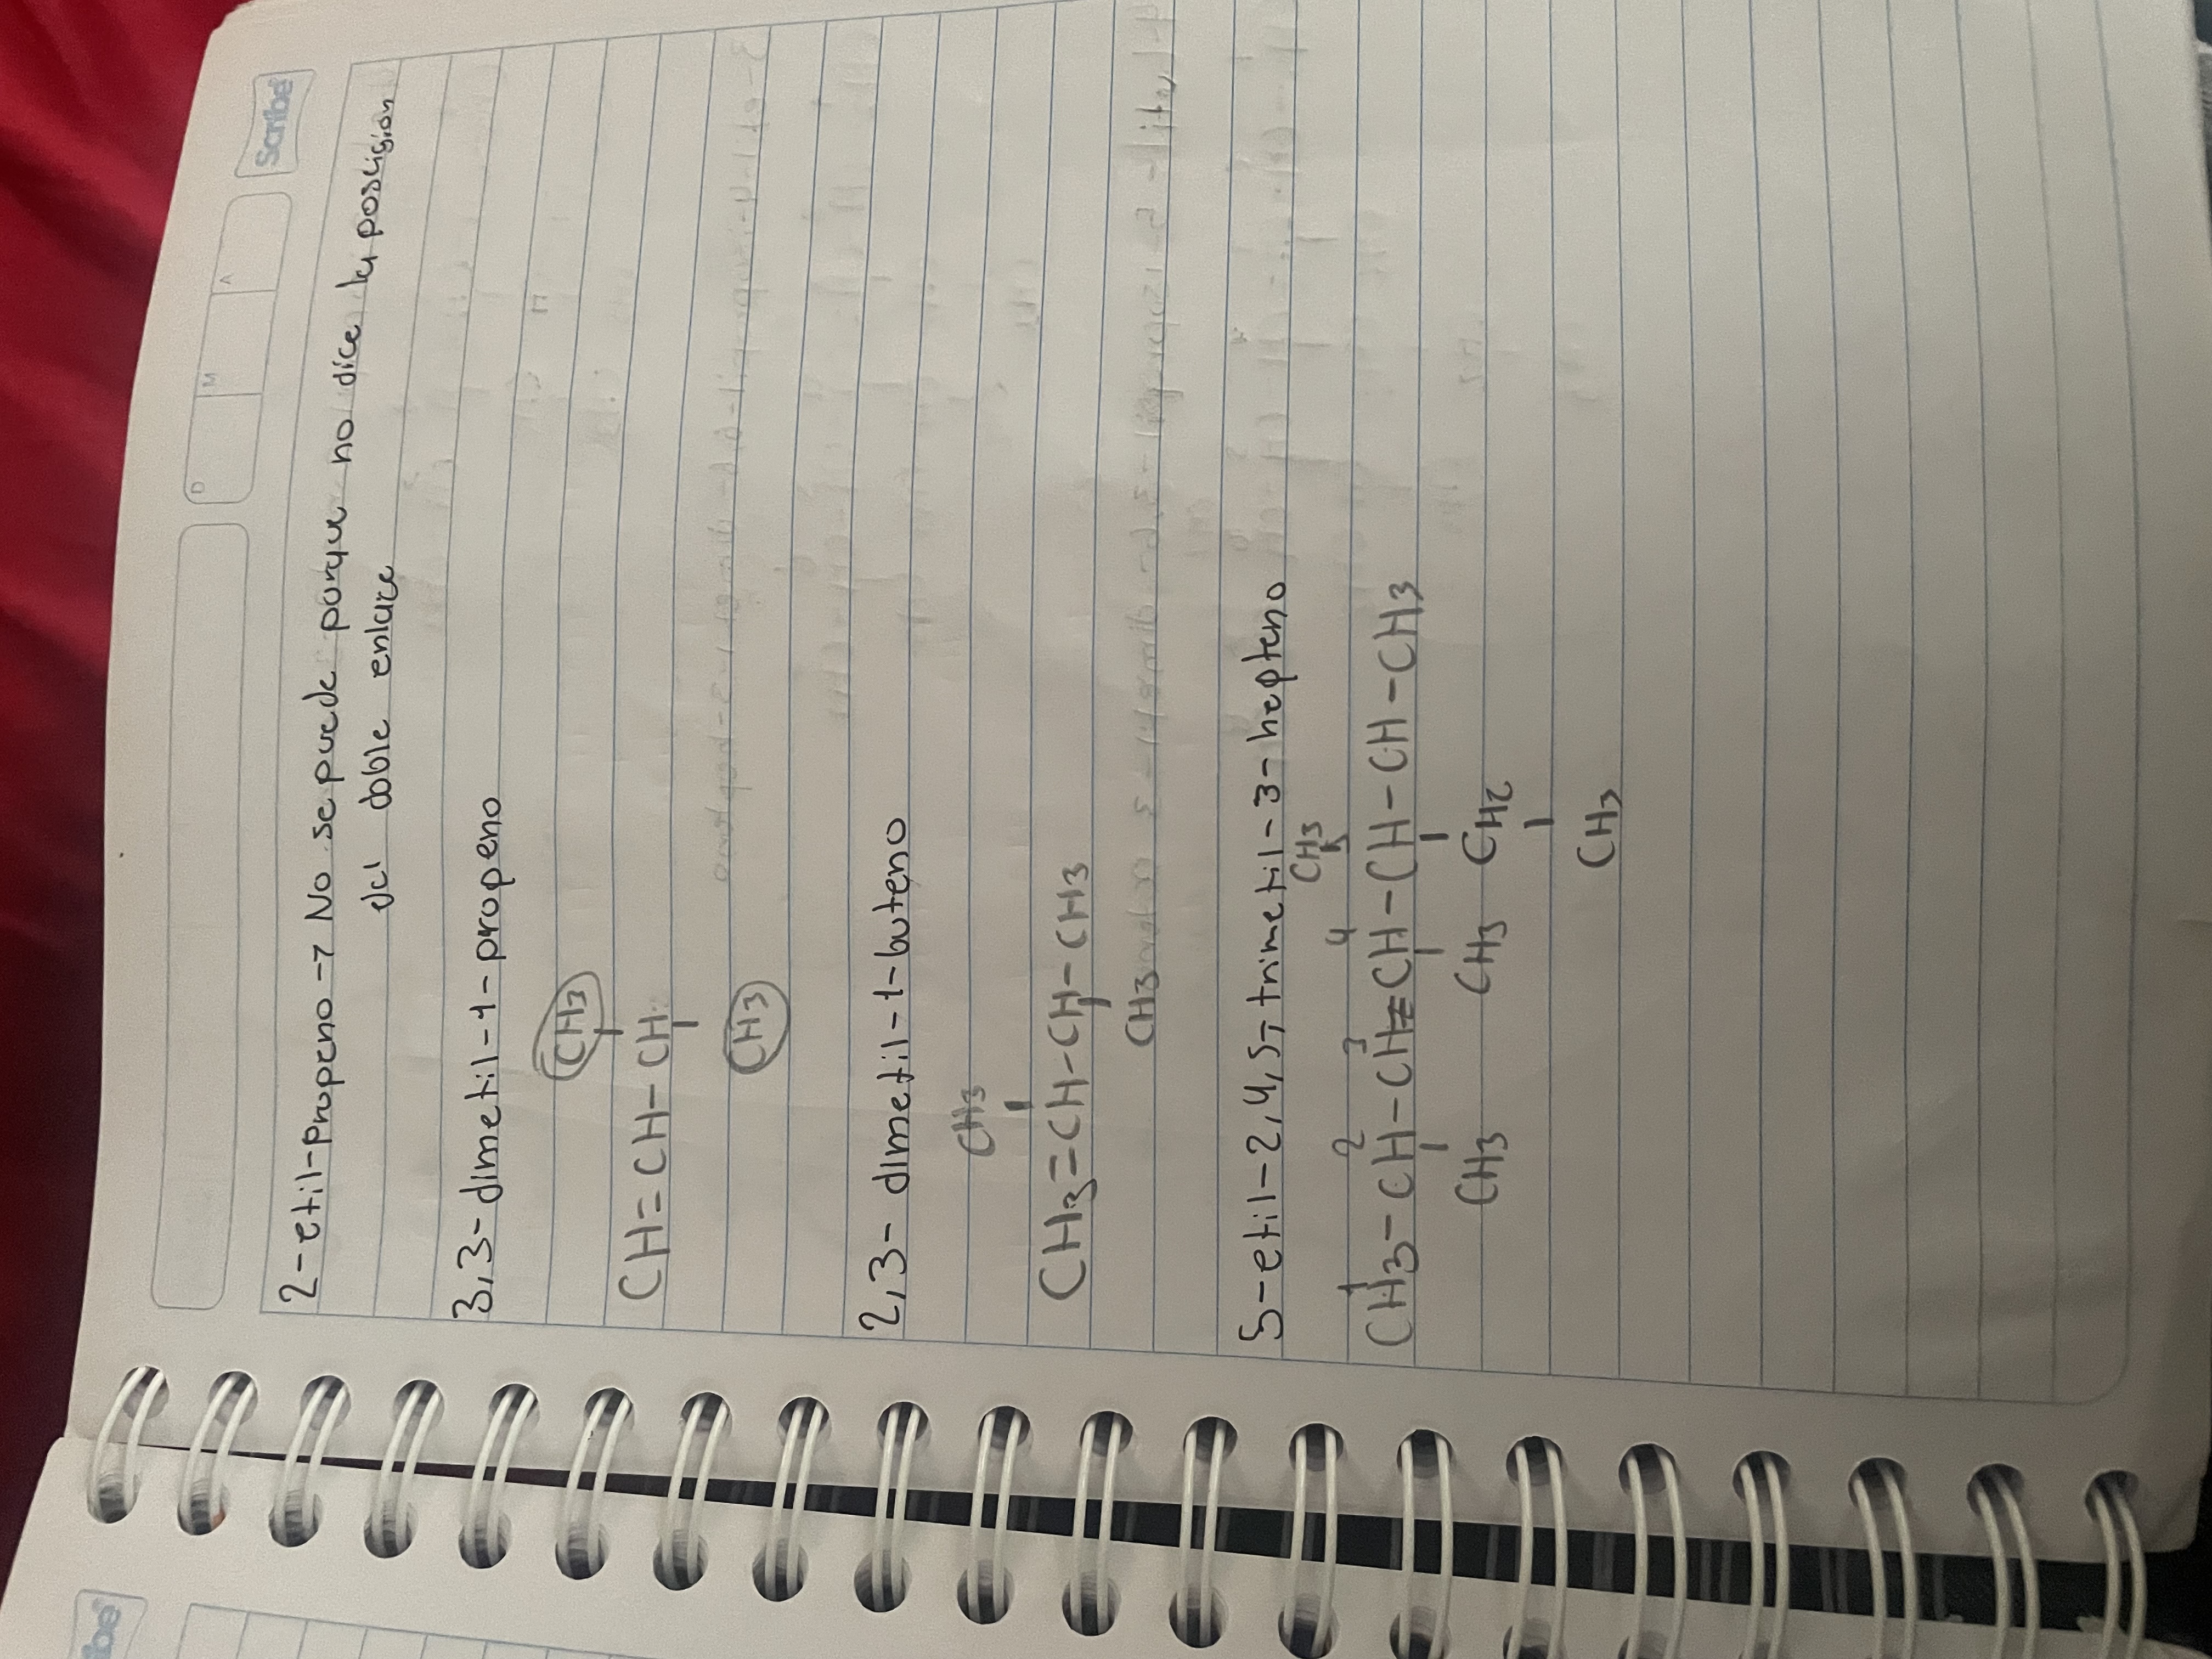 Scribe
D M A
2-etil-Propeno → No se puede porque no dice la posicision
del doble enlace
3,3-dimetil-1-propeno
CH3
CH=CH-CH
CH3
2,3-dimetil-1-buteno
CH3
CH3=CH-CH-CH3
CH3
5-etil-2,4,5-trimetil-3-hepteno
CH3
1 2 3 4 5
CH3-CH-CH=CH-CH-CH-CH3
CH3 CH3 CH2
CH3
be